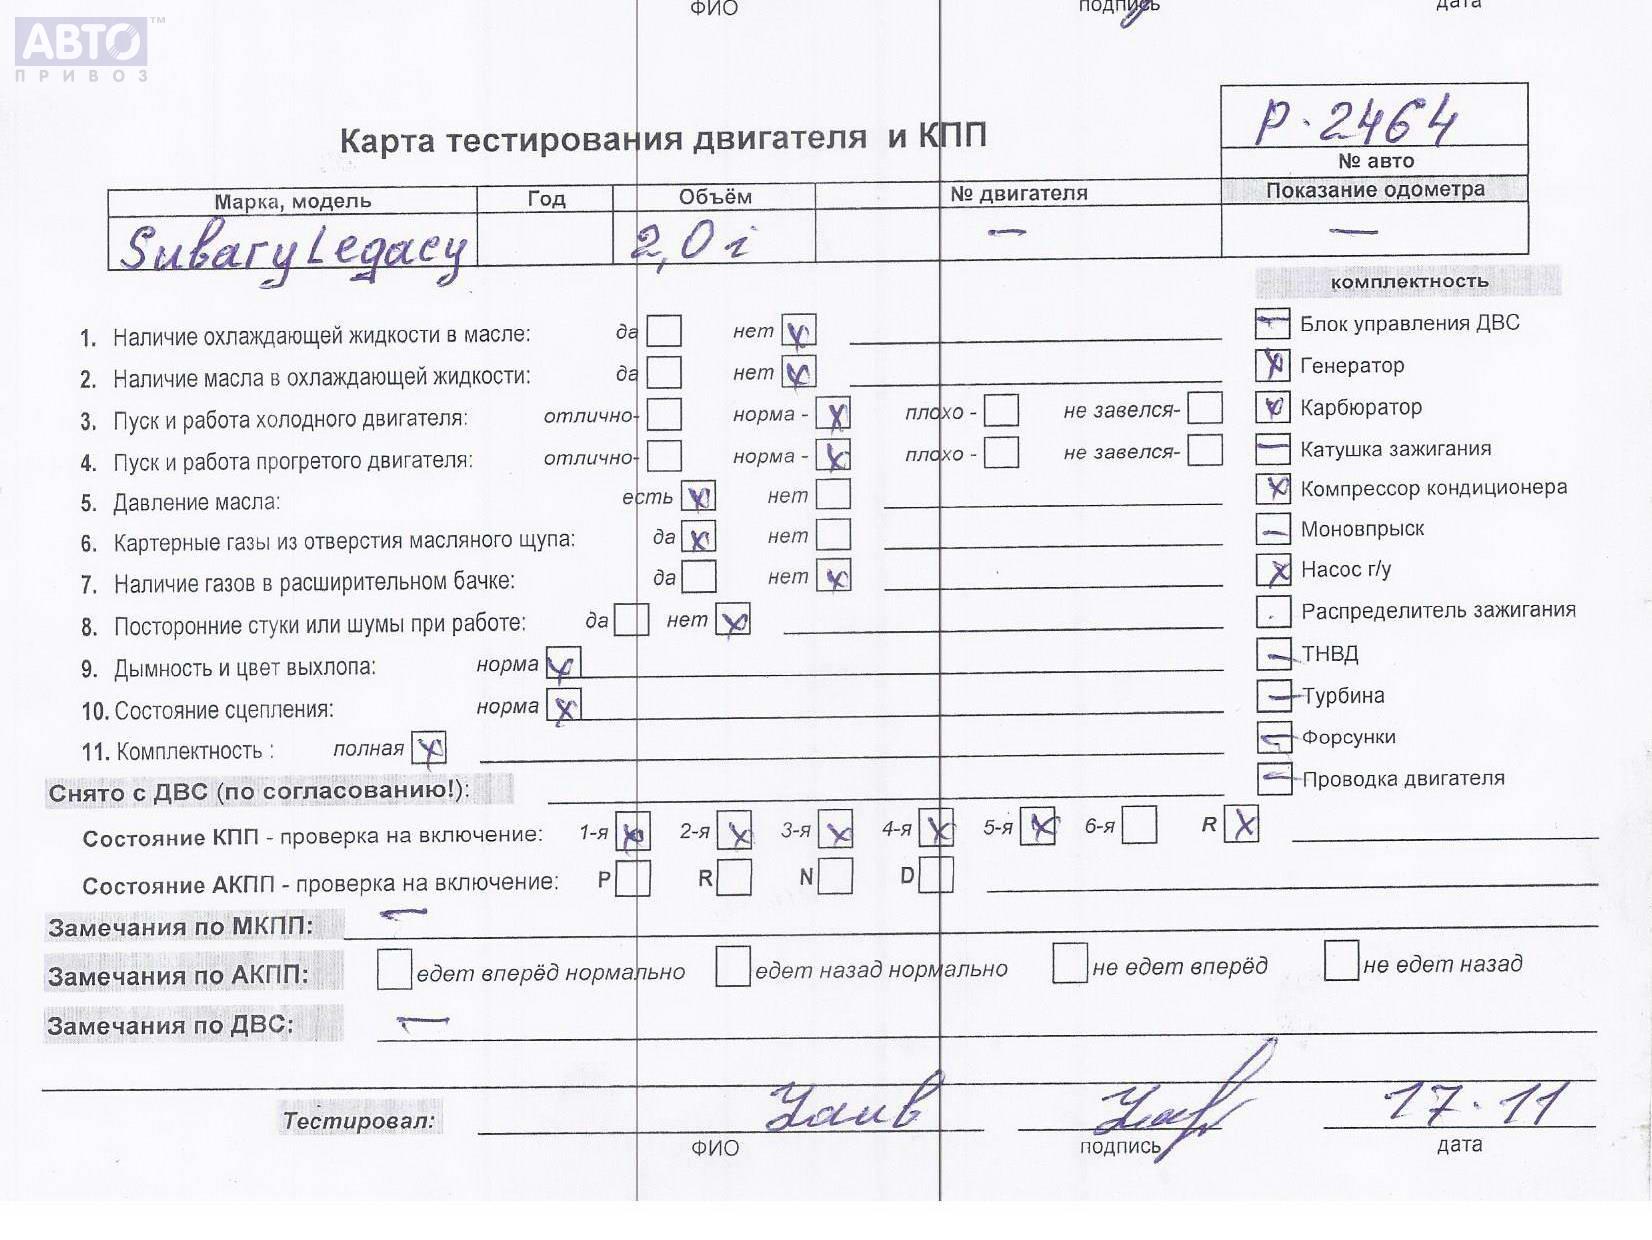 ФИО подпись дата
АВТО™
ПРИВОЗ
Р.2464
Карта тестирования двигателя и КПП
№ авто
Марка, модель Год Объём № двигателя Показание одометра
Subary Legacy 2,0 i — —
комплектность
1. Наличие охлаждающей жидкости в масле: да нет x
2. Наличие масла в охлаждающей жидкости: да нет x
3. Пуск и работа холодного двигателя: отлично- норма - x плохо - не завелся-
4. Пуск и работа прогретого двигателя: отлично- норма - x плохо - не завелся-
5. Давление масла: есть x нет
6. Картерные газы из отверстия масляного щупа: да x нет
7. Наличие газов в расширительном бачке: да нет x
8. Посторонние стуки или шумы при работе: да нет x
9. Дымность и цвет выхлопа: норма x
10. Состояние сцепления: норма x
11. Комплектность : полная x
— Блок управления ДВС
x Генератор
x Карбюратор
— Катушка зажигания
x Компрессор кондиционера
— Моновпрыск
x Насос г/у
Распределитель зажигания
— ТНВД
— Турбина
— Форсунки
— Проводка двигателя
Снято с ДВС (по согласованию!):
Состояние КПП - проверка на включение: 1-я x 2-я x 3-я x 4-я x 5-я x 6-я R x
Состояние АКПП - проверка на включение: P R N D
Замечания по МКПП: —
Замечания по АКПП: едет вперёд нормально едет назад нормально не едет вперёд не едет назад
Замечания по ДВС: —
Тестировал: 17.11
ФИО подпись дата